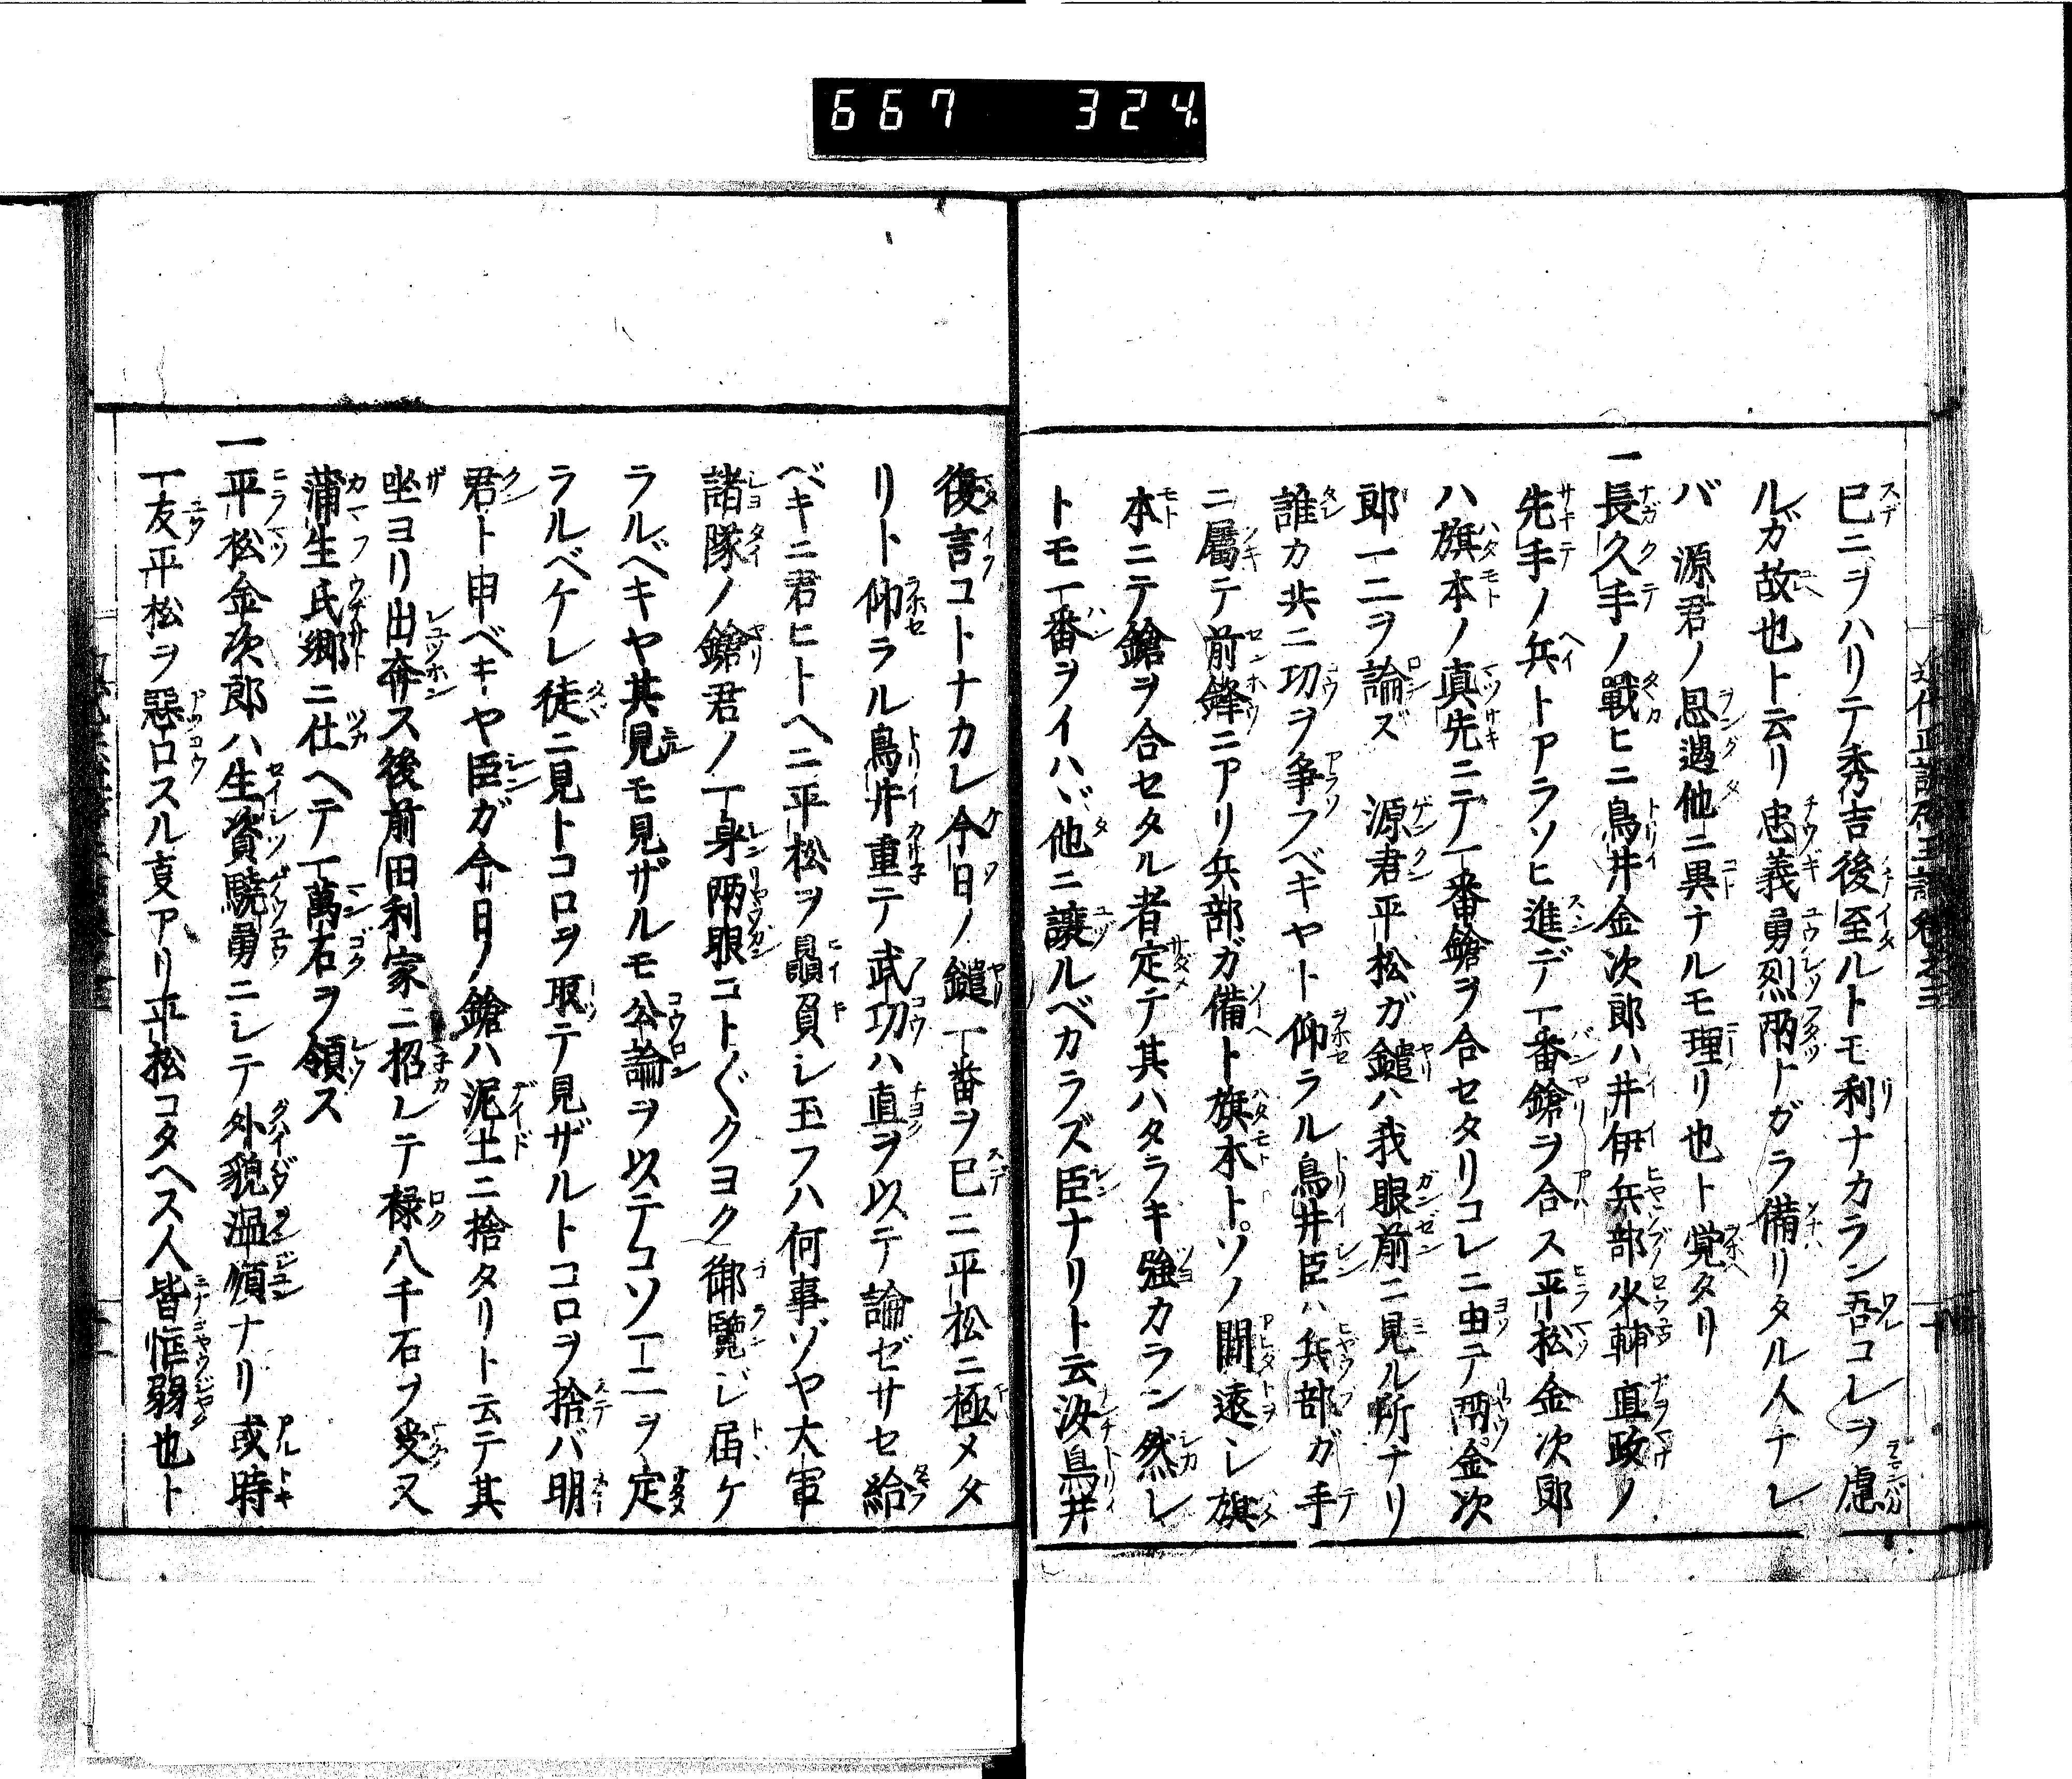 667 324.
已ニヲハリテ秀吉後至ルトモ利ナカラン吾コレヲ慮
ルガ故也ト云リ忠義勇烈兩トガラ備リタル人ナレ
バ 源君ノ恩遇他ニ異ナルモ理リ也ト覚タリ
一長久手ノ戰ヒニ鳥井金次郎ハ井伊兵部少輔直政ノ
先手ノ兵トアラソヒ進デ一番鎗ヲ合ス平松金次郎
ハ旗本ノ真先ニテ一番鎗ヲ合セタリコレニ由テ兩金次
郎一二ヲ論ズ 源君平松ガ鑓ハ我眼前ニ見ル所ナリ
誰カ共ニ功ヲ争フベキヤト仰ラル鳥井臣ハ兵部ガ手
ニ屬テ前鋒ニアリ兵部ガ備ト旗本トソノ間遠シ旗
本ニテ鎗ヲ合セタル者定テ其ハタラキ強カラン然レ
トモ一番ヲイハバ他ニ譲ルベカラズ臣ナリト云汝鳥井
復言コトナカレ今日ノ鑓一番ヲ已ニ平松ニ極メタ
リト仰ラル鳥井重テ武功ハ直ヲ以テ論ゼサセ給
ベキニ君ヒトヘニ平松ヲ贔負シ玉フハ何事ゾヤ大軍
諸隊ノ鎗君ノ一身兩眼コト〲クヨク御覽ジ届ケ
ラルベキヤ其見モ見ザルモ公論ヲ以テコソ一二ヲ定
ラルベケレ徒ニ見トコロヲ取テ見ザルトコロヲ捨バ明
君ト申ベキヤ臣ガ今日ノ鎗ハ泥土ニ捨タリト云テ其
坐ヨリ出奔ス後前田利家ニ招レテ禄八千石ヲ受又
蒲生氏郷ニ仕ヘテ一萬石ヲ領ス
一平松金次郎ハ生資驍勇ニシテ外貌温順ナリ或時
一友平松ヲ惡口スル支アリ平松コタヘス人皆恇弱也ト